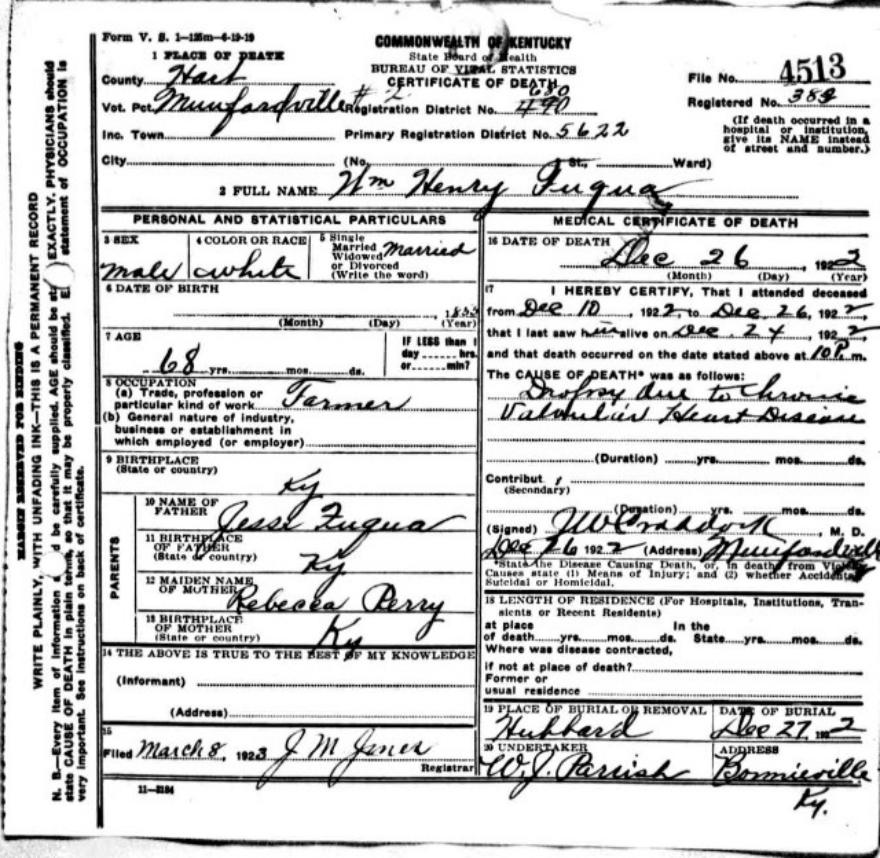 Form V. S. 1-125m-6-19-19
COMMONWEALTH OF KENTUCKY
State Board of Health
BUREAU OF VITAL STATISTICS
CERTIFICATE OF DEATH
1 PLACE OF DEATH
County Hart
Vot. Pct. Munfordville #2
Inc. Town
City
Registration District No. 490 680
Primary Registration District No. 5622
(No. St., Ward)
File No. 4513
Registered No. 389
(If death occurred in a
hospital or institution,
give its NAME instead
of street and number.)
2 FULL NAME Wm Henry Fuqua
PERSONAL AND STATISTICAL PARTICULARS
3 SEX
male
4 COLOR OR RACE
white
5 Single
Married
Widowed
or Divorced
(Write the word)
Married
6 DATE OF BIRTH
, 185
(Month) (Day) (Year)
7 AGE
68 yrs. mos. ds.
IF LESS than 1
day hrs.
or min?
8 OCCUPATION
(a) Trade, profession or
particular kind of work Farmer
(b) General nature of industry,
business or establishment in
which employed (or employer)
9 BIRTHPLACE
(State or country)
Ky
PARENTS
10 NAME OF
FATHER Jessi Fuqua
11 BIRTHPLACE
OF FATHER
(State or country) Ky
12 MAIDEN NAME
OF MOTHER Rebecca Perry
13 BIRTHPLACE
OF MOTHER
(State or country) Ky
14 THE ABOVE IS TRUE TO THE BEST OF MY KNOWLEDGE
(Informant)
(Address)
15
Filed March 8, 1923 J M Jones
Registrar
11-3184
MEDICAL CERTIFICATE OF DEATH
16 DATE OF DEATH
Dec 26, 1922
(Month) (Day) (Year)
17 I HEREBY CERTIFY, That I attended deceased
from Dec 10, 1922, to Dec 26, 1922,
that I last saw him alive on Dec 24, 1922
and that death occurred on the date stated above at 10 P. m.
The CAUSE OF DEATH* was as follows:
Dropsy due to Chronic
Valvular Heart Disease
(Duration) yrs. mos. ds.
Contribut
(Secondary)
(Duration) yrs. mos. ds.
(Signed) Craddock, M. D.
Dec 26 1922 (Address) Munfordville
Ky
*State the Disease Causing Death, or, in death from Viol
Causes state (1) Means of Injury; and (2) whether Accidenta
Suicidal or Homicidal.
18 LENGTH OF RESIDENCE (For Hospitals, Institutions, Tran-
sients or Recent Residents)
at place In the
of death yrs. mos. ds. State yrs. mos. ds.
Where was disease contracted,
if not at place of death?
Former or
usual residence
19 PLACE OF BURIAL OR REMOVAL
Hubbard
DATE OF BURIAL
Dec 27, 1922
20 UNDERTAKER
W. J. Parrish
ADDRESS
Bonnieville
Ky.
MARGIN RESERVED FOR BINDING
WRITE PLAINLY, WITH UNFADING INK—THIS IS A PERMANENT RECORD
N. B.—Every item of information be carefully supplied. AGE should be EXACTLY. PHYSICIANS should
state CAUSE OF DEATH in plain terms, so that it may be properly classified. statement of OCCUPATION is
very important. See instructions on back of certificate.